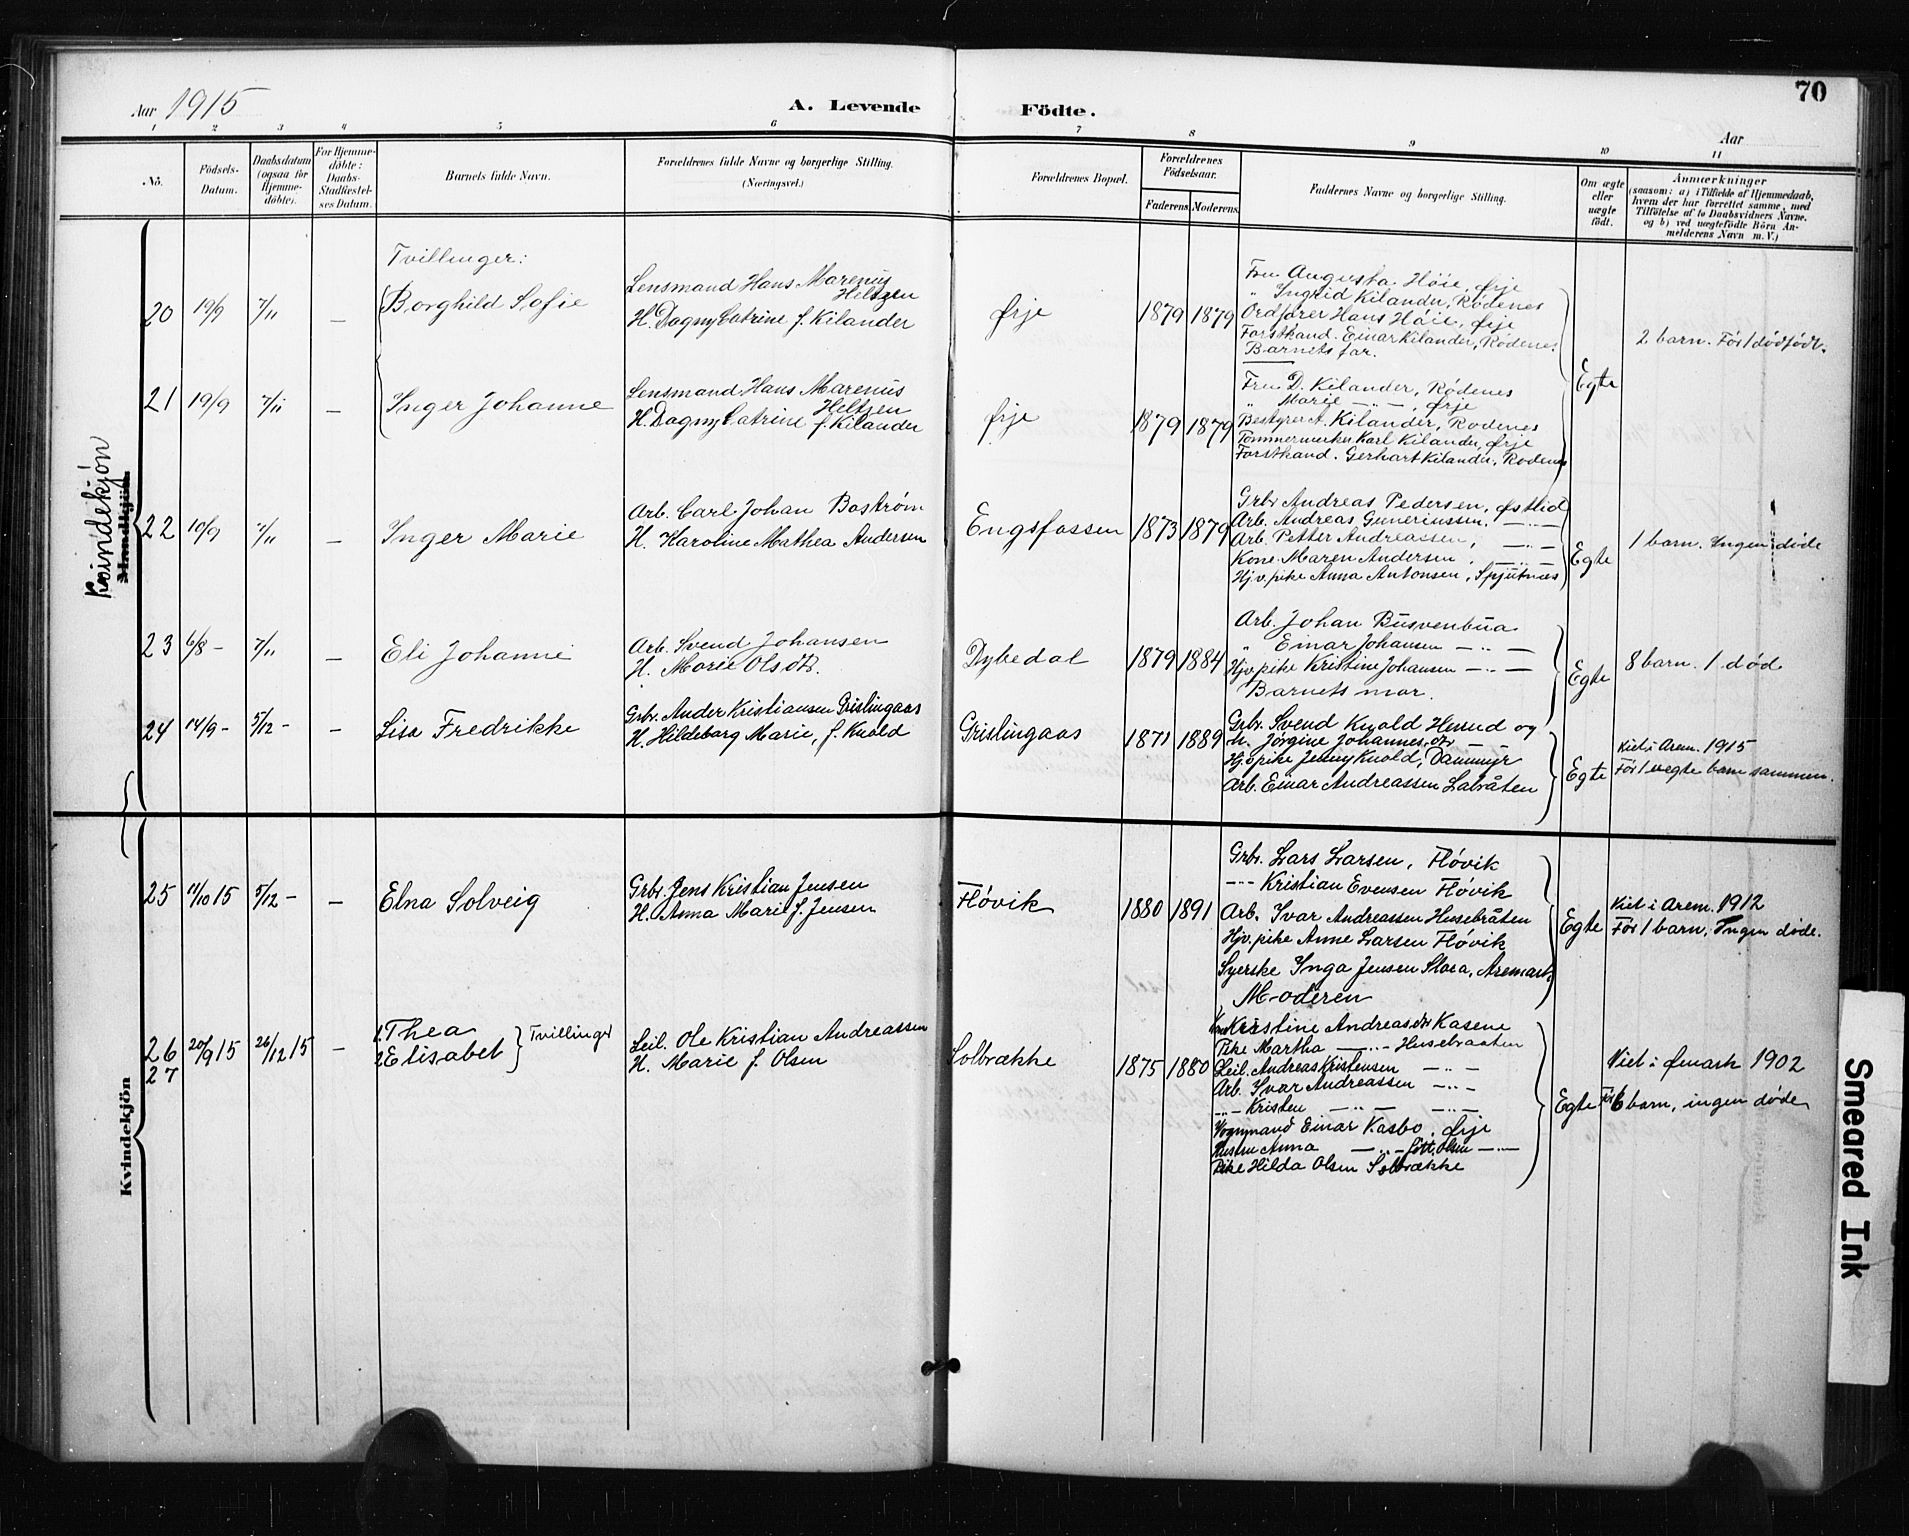 70
Aar 1915
A. Levende Födte.
Aar
1 2 3 4 5 6 7 8 9 10 11
No.
Födsels-Datum.
Daabsdatum (ogsaa for Hjemmedöbte).
For Hjemmedöbte: Daabs-Stadfæstelses Datum.
Barnets fulde Navn.
Forældrenes fulde Navne og borgerlige Stilling. (Næringsvei.)
Forældrenes Bopæl.
Forældrenes Födselsaar.
Faderens. Moderens.
Faddernes Navne og borgerlige Stilling.
Om ægte eller uægte födt.
Anmærkninger
(saasom: a) i Tilfælde af Hjemmedaab, hvem der har forrettet samme, med Tilföielse af to Daabsvidners Navne, og b) ved uægtefödte Börn Anmelderens Navn m. V.)
Kvindekjön
Mandkjön
Tvillinger:
20 19/9 7/11 — Borghild Sofie
Lensmand Hans Marenius Hiltzen
H. Dagny Catrine f. Kilander
Ørje 1879 1879
Fru Augusta Höie, Ørje
" Ingrid Kilander, Rödenes
Ordförer Hans Höie, Ørje
Forstkand. Einar Kilander, Rödenes
Barnets far.
2 barn. För 1 dödfödt.
21 19/9 7/11 — Inger Johanne
Lensmand Hans Marenius Hiltzen
H. Dagny Catrine f. Kilander
Ørje 1879 1879
Fru D. Kilander, Rödenes
" Marie —"—, Ørje
Bestyrer A. Kilander, Rödenes
Tømmermerker Karl Kilander, Ørje
Forstkand. Gerhart Kilander, Rödenes
Egte
22 10/9 7/11 — Inger Marie
Arb. Carl Johan Boström
H. Karoline Mathea Andersen
Engsfossen 1873 1879
Grbr Andreas Pedersen, Østlid
Arb. Andreas Guneriussen, —"—
Arb. Petter Andreassen, —"—
Kone Maren Andersen, —"—
Hjv. pike Anna Antonsen, Spjutnæs
Egte
1 barn. Ingen döde
23 6/8 - 7/11 — Eli Johanne
Arb. Svend Johansen
H. Marie Olsdtr.
Dybedal 1879 1884
Arb. Johan Busvenbua
" Einar Johansen —"—
Hjv. pike Kristine Johansen —"—
Barnets mor.
Egte
8 barn. 1 död.
24 14/9 - 5/12 - — Lisa Fredrikke
Grbr. Ander Kristiansen Grislingaas
H. Hildeborg Marie, f. Kuold
Grislingaas 1871 1889
Grbr. Svend Kuold Herud og
h. Jörgine Johannesdtr —
Hjv. pike Jenny Kuold, Dammyr
Arb. Einar Andreassen Labråten
Egte
Viet i Arem. 1915
För 1 uegte barn sammen.
Kvindekjön
25 11/10 15 5/12 - — Elna Solveig
Grbr. Jens Kristian Jensen
H. Anna Marie f. Jensen
Flövik 1880 1891
Grbr. Lars Larsen, Flövik
-"- Kristian Evensen Flövik
Arb. Ivar Andreassen Husebråten
Hjv. pike Anne Larsen Flövik
Syerske Inga Jensen Slora, Aremark
Moderen
Egte
Viet i Arem. 1912
För 1 barn. Ingen döde.
26 27 20/9 15 26/12 15 — 1. Thea
2. Elisabet } Tvillinger
Leil. Ole Kristian Andreassen
H. Marie f. Olsen
Solbrække 1875 1880
Kristine Andreasdtr Kasene
Pike Martha —"— Husebraaten
Leil. Andreas Kristensen —"—
Arb. Ivar Andreassen —"—
-"- Kristen —"— —"—
Vognmand Einar Kasbo, Ørje
Hustru Anna —"— född Olsen —"—
Pike Hilda Olsen Solbrække
Egte
Viet i Ømark 1902
För 6 barn, ingen döde
Smeared Ink